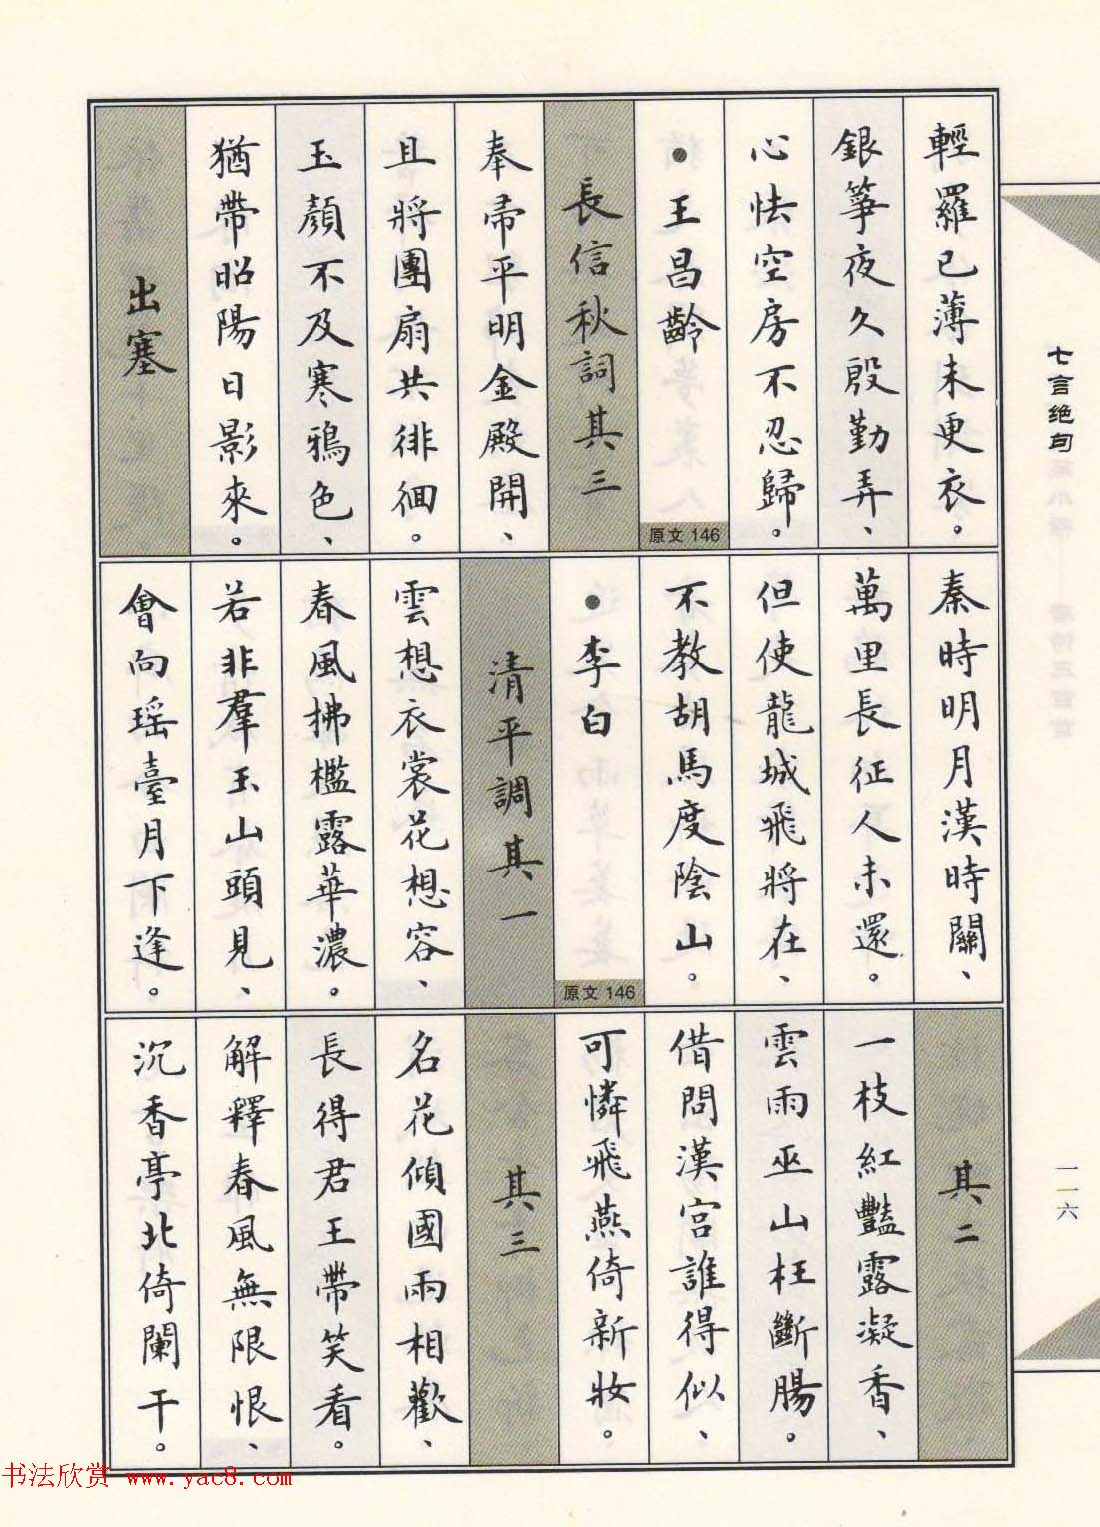 輕羅已薄未更衣。
銀箏夜久殷勤弄、
心怯空房不忍歸。
•王昌齡
原文146
長信秋詞其三
奉帚平明金殿開、
且將團扇共徘徊。
玉顏不及寒鴉色、
猶帶昭陽日影來。
出塞
秦時明月漢時關、
萬里長征人未還。
但使龍城飛將在、
不教胡馬度陰山。
•李白
原文146
清平調其一
雲想衣裳花想容、
春風拂檻露華濃。
若非羣玉山頭見、
會向瑶臺月下逢。
其二
一枝紅豔露凝香、
雲雨巫山枉斷腸。
借問漢宮誰得似、
可憐飛燕倚新妝。
其三
名花傾國兩相歡、
長得君王帶笑看。
解釋春風無限恨、
沉香亭北倚闌干。
七言绝句
一一六
书法欣赏 www.yac8.com